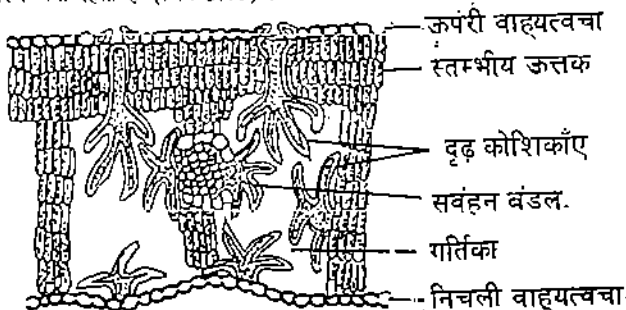 ऊपरी वाह्यत्वचा
स्तम्भीय ऊत्तक
दृढ़ कोशिकाँए
सवंहन वंडल.
गर्तिका
निचली वाह्यत्वचा